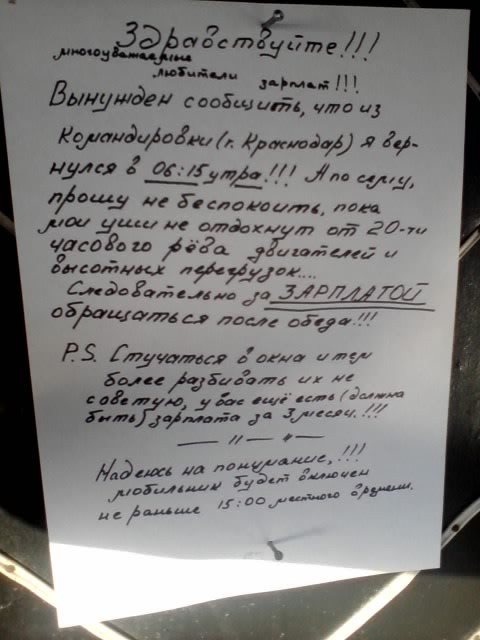 Здравствуйте!!!
многоуважаемые
любители зарплат!!!
Вынужден сообщить, что из
командировки (г. Краснодар) я вер-
нулся в 06:15 утра!!! А по сему,
прошу не беспокоить, пока
мои уши не отдохнут от 20-ти
часового рёва двигателей и
высотных перегрузок....
Следовательно за ЗАРПЛАТОЙ
обращаться после обеда!!!
P.S. Стучаться в окна и тем
более разбивать их не
советую, у вас ещё есть (должна
быть) зарплата за 3 месяц.!!!
— 11 — " —
Надеюсь на понимание, !!!
мобильник будет включен
не раньше 15:00 местного времени.